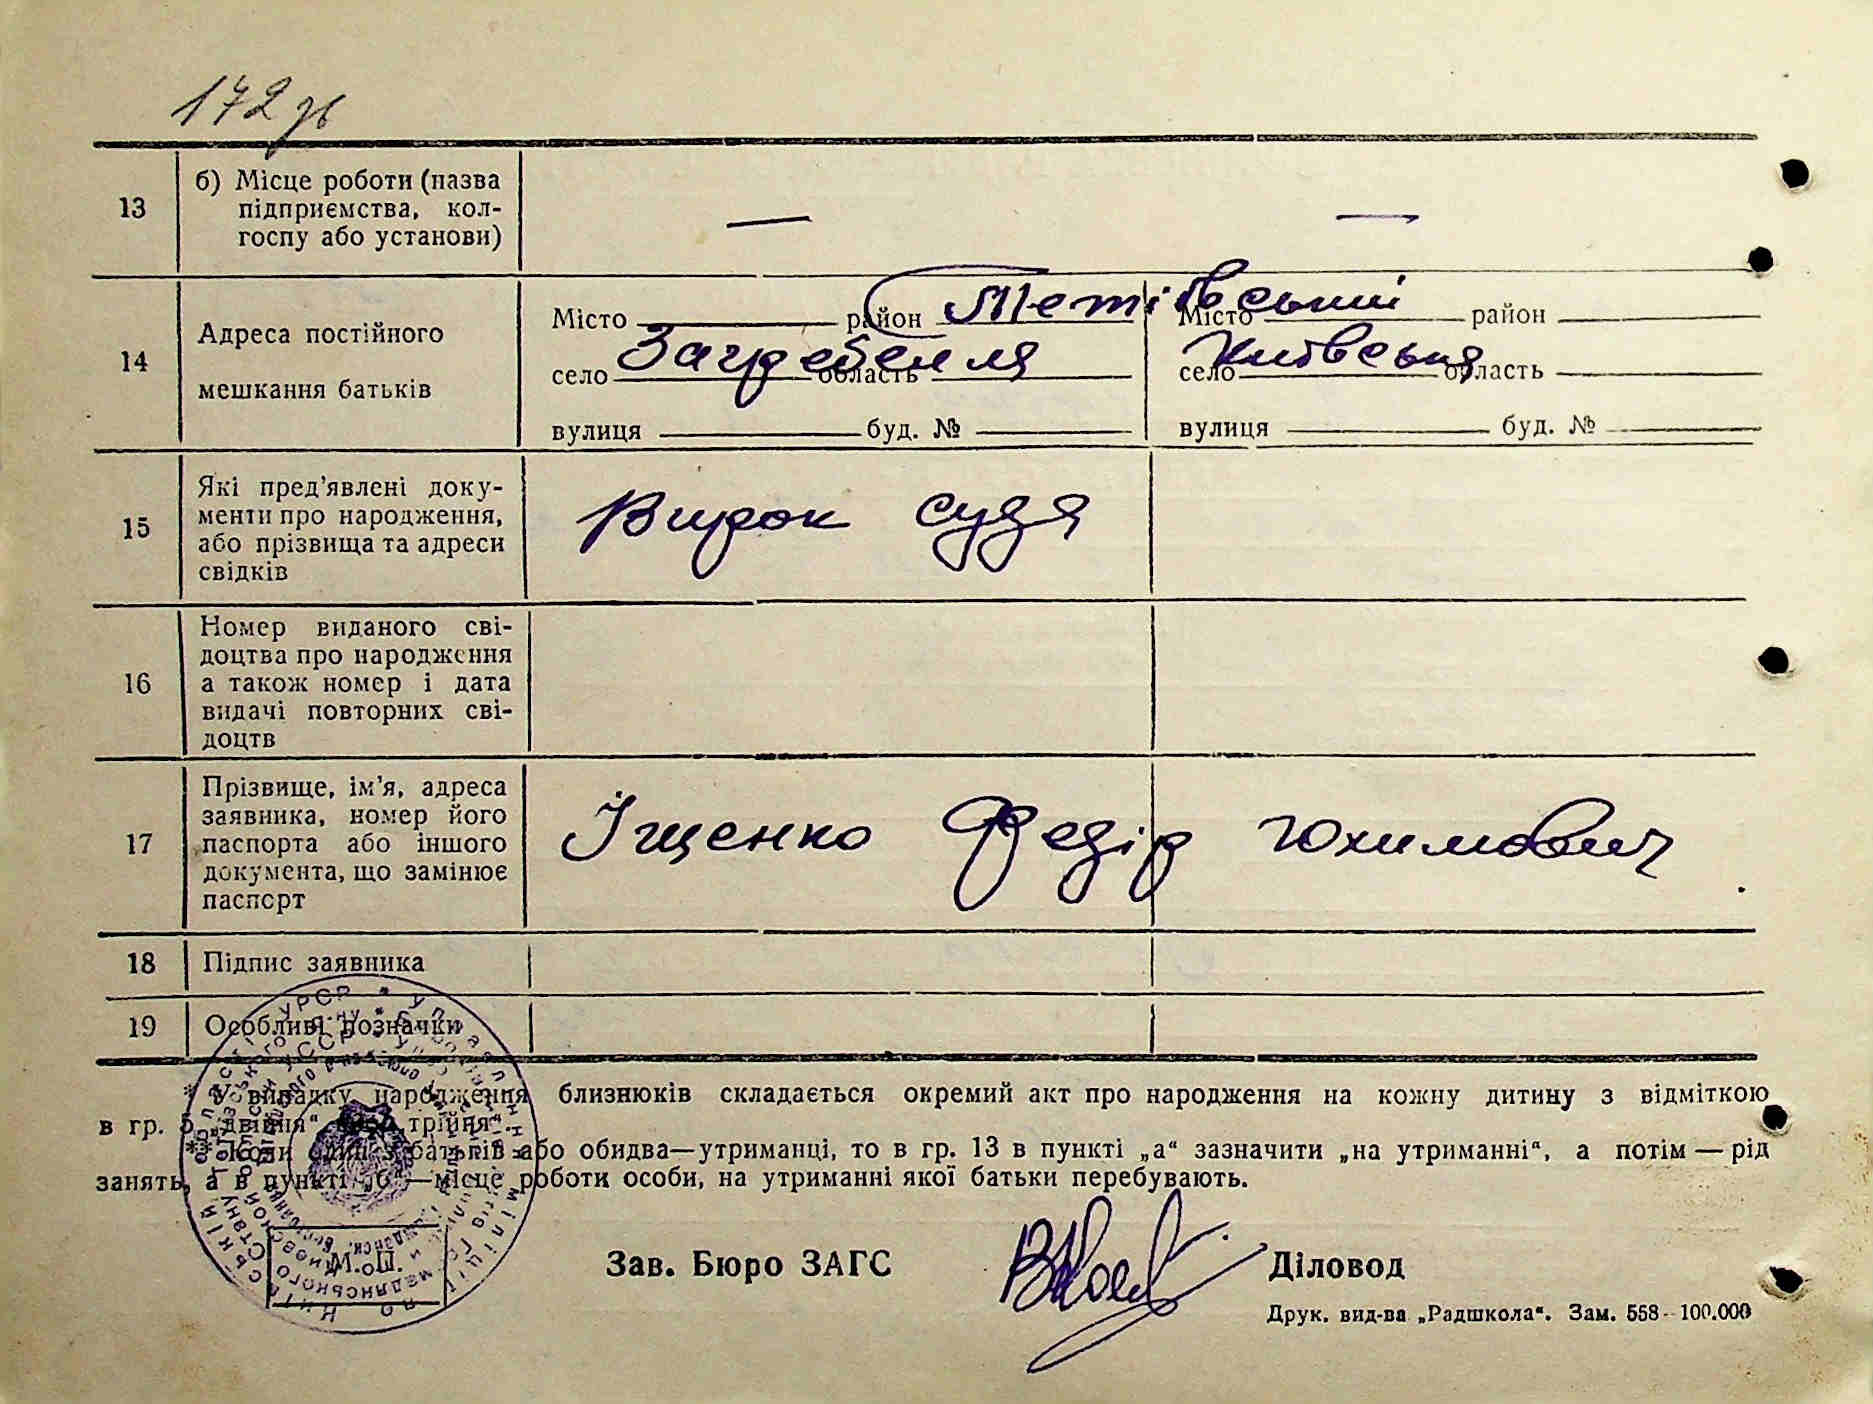 172 зв
13
б) Місце роботи (назва
підприємства, кол-
госпу або установи)
— —
14
Адреса постійного
мешкання батьків
Місто район Тетівський Місто район
село Загребення область село Київська область
вулиця буд. № вулиця буд. №
15
Які пред'явлені доку-
менти про народження,
або прізвища та адреси
свідків
Вирок суда
16
Номер виданого сві-
доцтва про народження
а також номер і дата
видачі повторних сві-
доцтв
17
Прізвище, ім'я, адреса
заявника, номер його
паспорта або іншого
документа, що замінює
паспорт
Іщенко Федір Юхимович
18
Підпис заявника
19
Особливі позначки
* У випадку народження близнюків складається окремий акт про народження на кожну дитину з відміткою
в гр. 5 „двійня“ трійня“.
** Коли один з батьків або обидва—утриманці, то в гр. 13 в пункті „а“ зазначити „на утриманні“, а потім — рід
занять, а в пункті „б“—місце роботи особи, на утриманні якої батьки перебувають.
М. П.
Зав. Бюро ЗАГС
Діловод
Друк. вид-ва „Радшкола“. Зам. 558—100.000